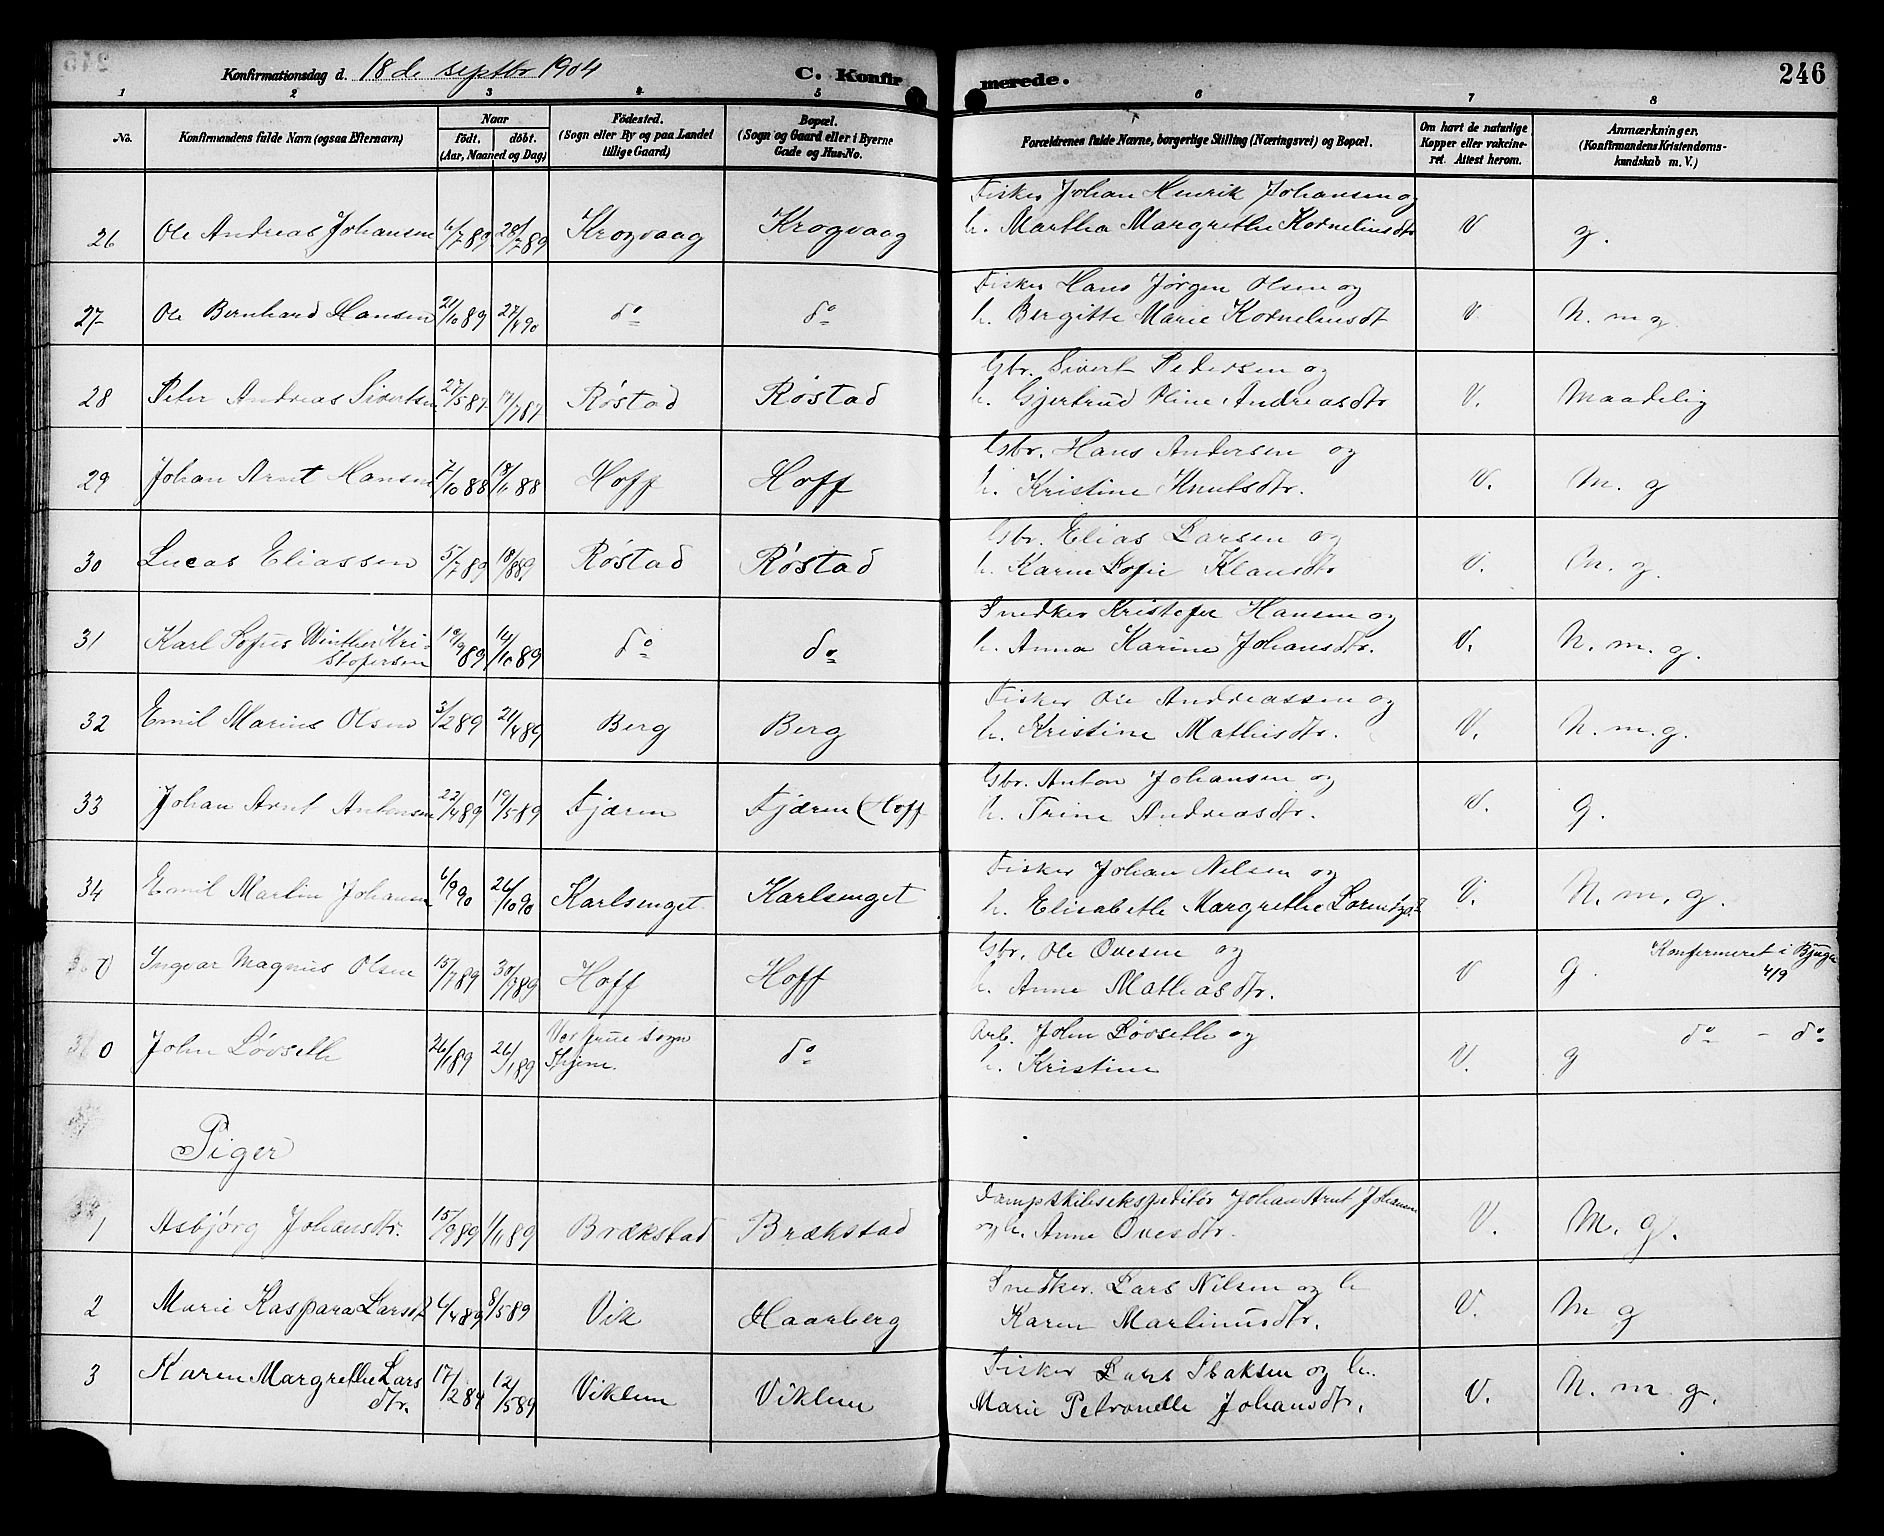 246
Konfirmationsdag d. 18de septbr 1904 C. Konfirmerede.
1 2 3 4 5 6 7 8
No. Konfirmandens fulde Navn (ogsaa Efternavn) Naar födt. döbt. (Aar, Maaned og Dag) Födested. (Sogn eller By og paa Landet tillige Gaard) Bopæl. (Sogn og Gaard eller i Byerne Gade og Hus-No. Forældrenes fulde Navne, borgerlige Stilling (Næringsvei) og Bopæl. Om havt de naturlige Kopper eller vakcineret. Attest herom. Anmærkninger. (Konfirmandens Kristendomskundskab m. V.)
Fisker Johan Henrik Johansen og
26 Ole Andreas Johansen 6/7 89 28/7 89 Krogvaag Krogvaag h. Martha Margrethe Korneliusdtr V g.
Fisker Hans Jørgen Olsen og
27 Ole Bernhard Hansen 21/10 89 do do h. Bergitte Marie Korneliusdt V. N. m g.
Gbr. Sivert Pedersen og
28 Peter Andreas Sivertsen 27/5 87 17/7 87 Röstad Röstad h. Gjertrud Oline Andreasdtr V. Maadelig
Gbr. Hans Andersen og
29 Johan Arnt Hansen 7/10 88 18/11 88 Hoff Hoff h. Kristine Knutsdtr. V. M. g
Gbr. Elias Larsen og
30 Lucas Eliassen 5/7 89 18/8 89 Röstad Röstad h. Karen Sofie Klausdtr V. M. g.
Snedker Kristofer Hansen og
31 Karl Sofus Winther Kri-
stofersen 10/9 89 14/10 89 do do h. Anna Karine Johansdtr. V. N. m. g.
Fisker Ole Andreassen og
32 Emil Marius Olsen 3/2 89 21/4 89 Berg Berg h. Kristine Mathisdtr. V. N. m. g.
Gbr. Anton Johansen og
33 Johan Arnt Antonsen 22/4 89 19/5 89 Fjæren Fjæren (Hoff h. Trine Andreasdtr. V. g.
Fisker Johan Nilsen og
34 Emil Martin Johansen 6/9 90 26/10 90 Karlsenget Karlsenget h. Elisabeth Margrethe Lorentzdt V. N. m. g.
Gbr. Ole Ovesen og
0 Ingvar Magnus Olsen 15/7 89 30/7 89 Hoff Hoff h. Anne Mathiasdtr. V g. Konfirmeret i Bjugn
4/9
Arb. John Lövseth og
0 John Lövseth 26/1 89 26/1 89 Vor frue sogn
Thjem. do h. Kristine V. g do - do
Piger
Dampskibsekspeditör Johan Arnt Johansen
1 Asbjörg Johansdtr. 15/9 89 1/11 89 Brækstad Brækstad og h. Anne Ovesdtr. V. M. g.
Snedker. Lars Nilsen og h
2 Marie Kaspara Larsdt 6/4 89 8/5 89 Vik Haarberg Karen Martinusdtr. V. M g
Fisker Lars Isaksen og h.
3 Karen Margrethe Lars
dtr. 17/2 89 12/5 89 Viklem Viklem Marie Petronelle Johansdtr. V. N. m g.